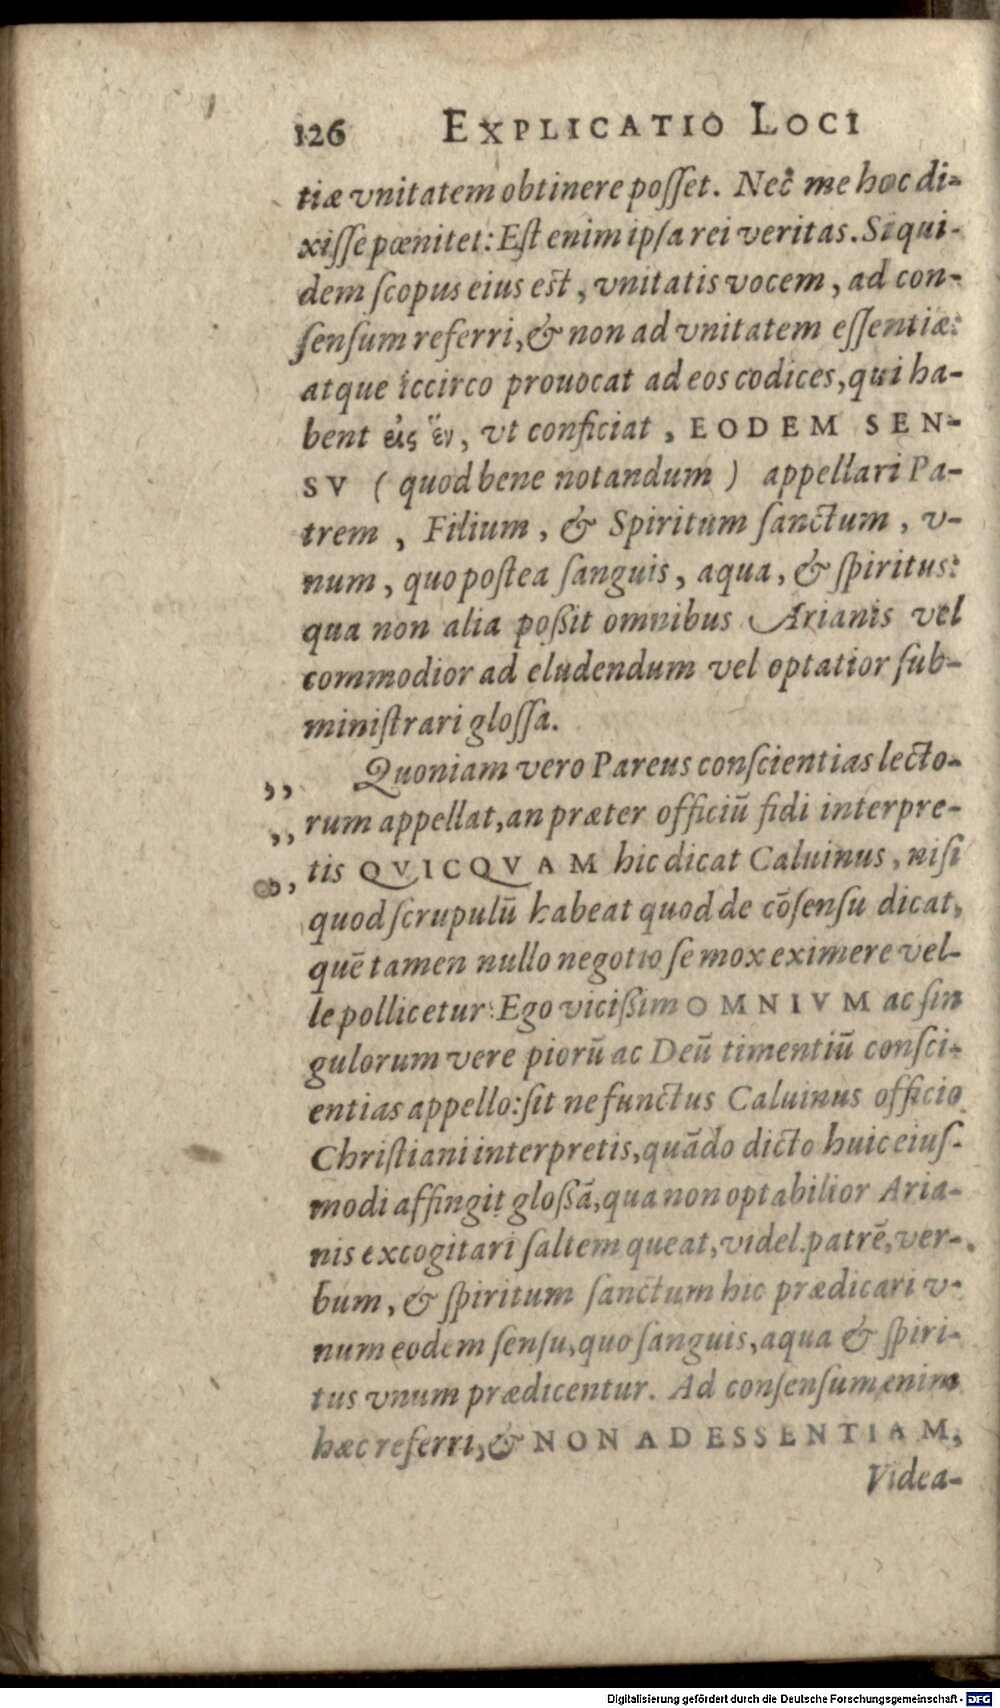 126 EXPLICATIO LOCI
tiæ vnitatem obtinere poſſet. Nec me hoc di-
xiſſe pœnitet: Eſt enim ipſa rei veritas. Siqui-
dem ſcopus eius eſt, vnitatis vocem, ad con-
ſenſum referri, & non ad vnitatem eſſentiæ:
atque iccirco prouocat ad eos codices, qui ha-
bent εἰς ἕν, vt conficiat, EODEM SEN-
SV (quod bene notandum) appellari Pa-
trem, Filium, & Spiritum ſanctum, v-
num, quo poſtea ſanguis, aqua, & ſpiritus:
qua non alia poßit omnibus Arianis vel
commodior ad eludendum vel optatior ſub-
miniſtrari gloſſa.
„ Quoniam vero Pareus conſcientias lecto-
„ rum appellat, an præter officiũ fidi interpre-
„ tis QVICQVAM hic dicat Caluinus, niſi
quod ſcrupulũ habeat quod de cõſenſu dicat,
quẽ tamen nullo negotio ſe mox eximere vel-
le pollicetur: Ego vicißim OMNIVM ac ſin
gulorum vere piorũ ac Deũ timentiũ conſci-
entias appello: ſit ne functus Caluinus officio
Chriſtiani interpretis, quãdo dicto huic eiuſ-
modi affingit gloßã, qua non optabilior Aria-
nis excogitari ſaltem queat, videl. patrẽ, ver-
bum, & ſpiritum ſanctum hic prædicari v-
num eodem ſenſu, quo ſanguis, aqua & ſpiri-
tus vnum prædicentur. Ad conſenſum enim
hæc referri, & NON AD ESSENTIAM,
Videa-
Digitalisierung gefördert durch die Deutsche Forschungsgemeinschaft - DFG